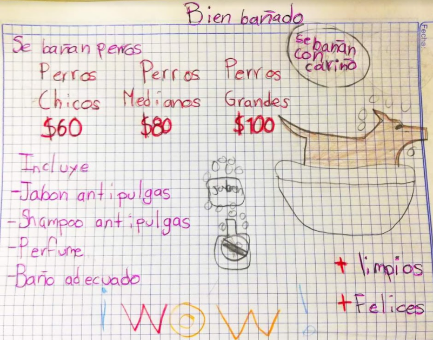 Bien bañado
Se bañan perros
Se bañan
con
cariño
Perros Perros Perros
Chicos Medianos Grandes
$60 $80 $100
Incluye
-Jabon antipulgas
-Shampoo antipulgas
-Perfume
-Baño adecuado
Jabon
+ limpios
+ Felices
¡WOW!
Fecha